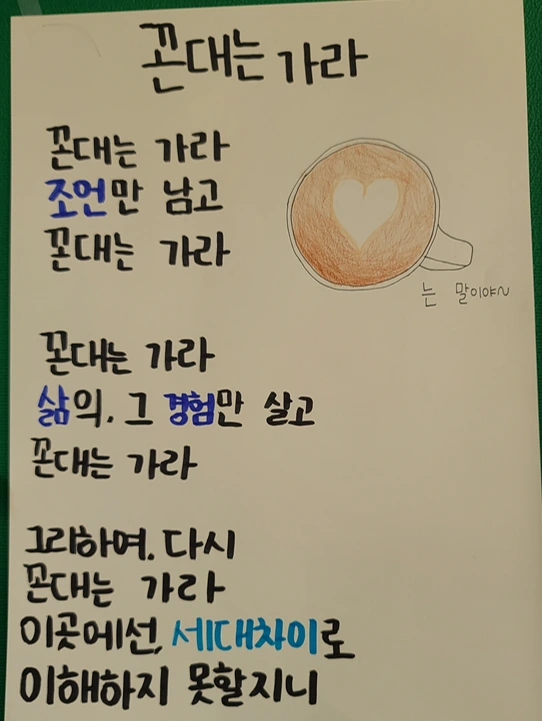 꼰대는 가라
꼰대는 가라
조언만 남고
꼰대는 가라
는 말이야~
꼰대는 가라
삶의, 그 경험만 살고
꼰대는 가라
그리하여, 다시
꼰대는 가라
이곳에선, 세대차이로
이해하지 못할지니